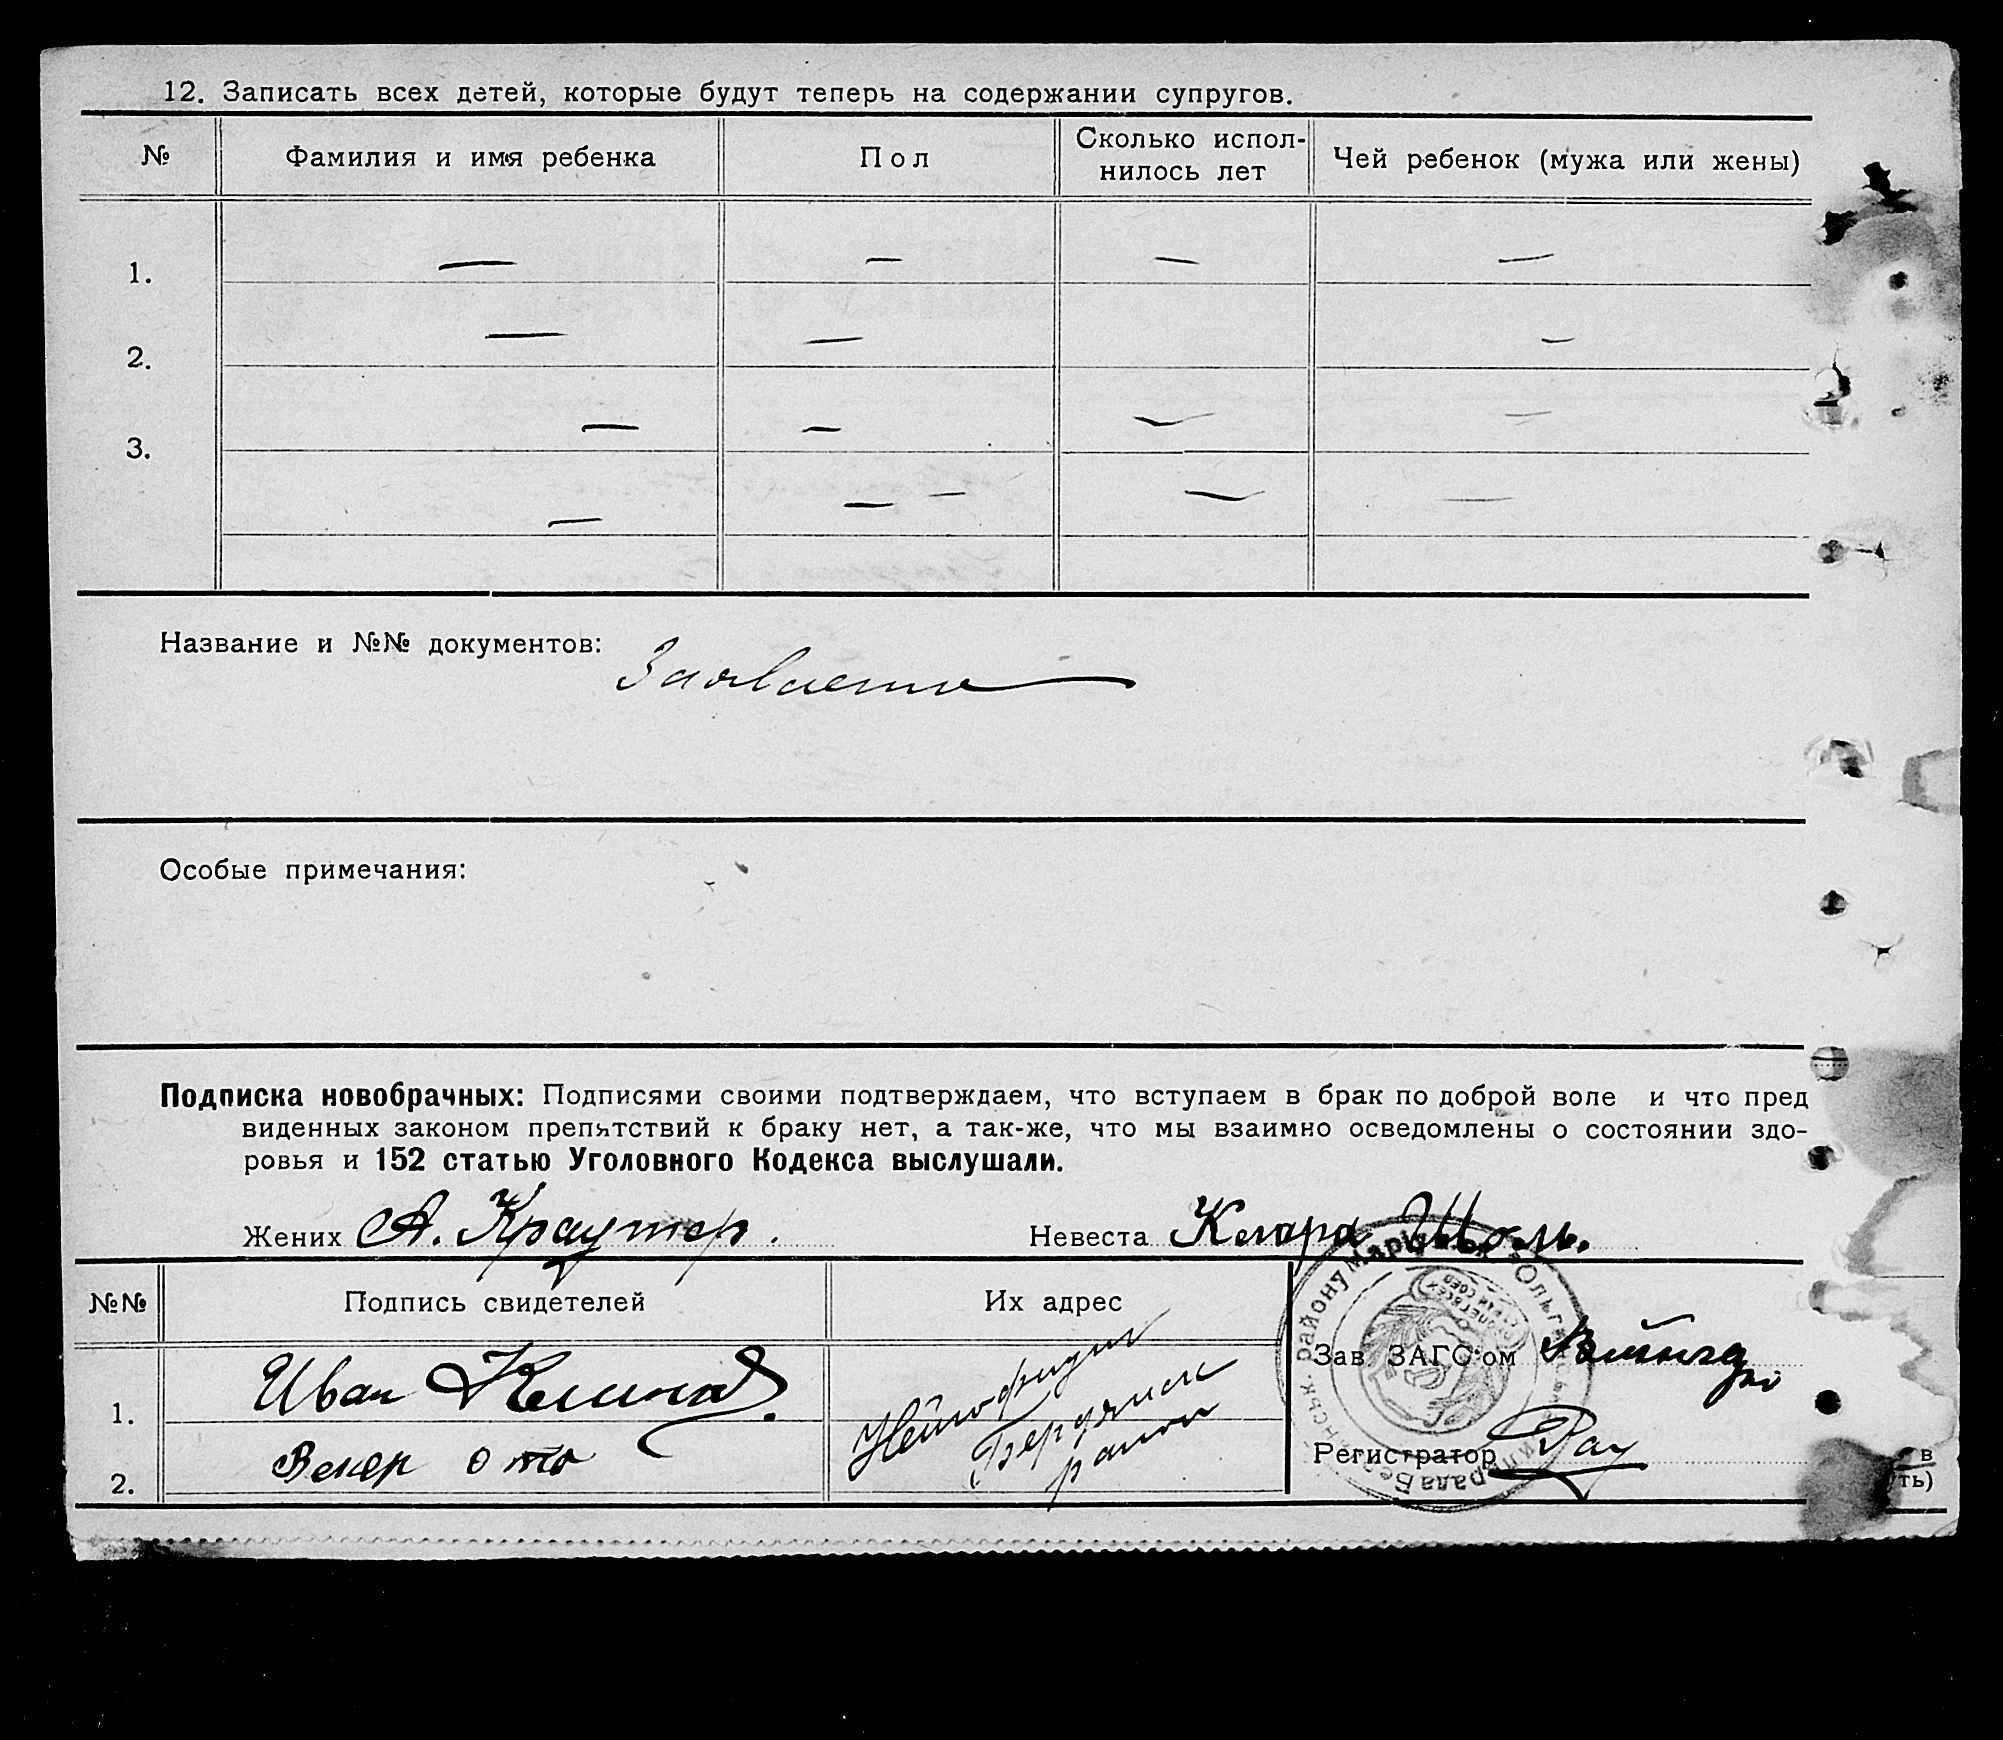 12. Записать всех детей, которые будут теперь на содержании супругов.
№ Фамилия и имя ребенка Пол Сколько испол-нилось лет Чей ребенок (мужа или жены)
1. — — — —
2. — — —
3. — — — —
— — — — —
Название и №№ документов:
Особые примечания:
Подписка новобрачных: Подписями своими подтверждаем, что вступаем в брак по доброй воле и что пред
виденных законом препятствий к браку нет, а так-же, что мы взаимно осведомлены о состоянии здо-
ровья и 152 статью Уголовного Кодекса выслушали.
Жених А. Краутер. Невеста Клара Шоль.
№№ Подпись свидетелей Их адрес
Зав ЗАГС'ом
1. Иван
Бердянск
район
Регистратор Рау
2. Векер ото
в
ть)